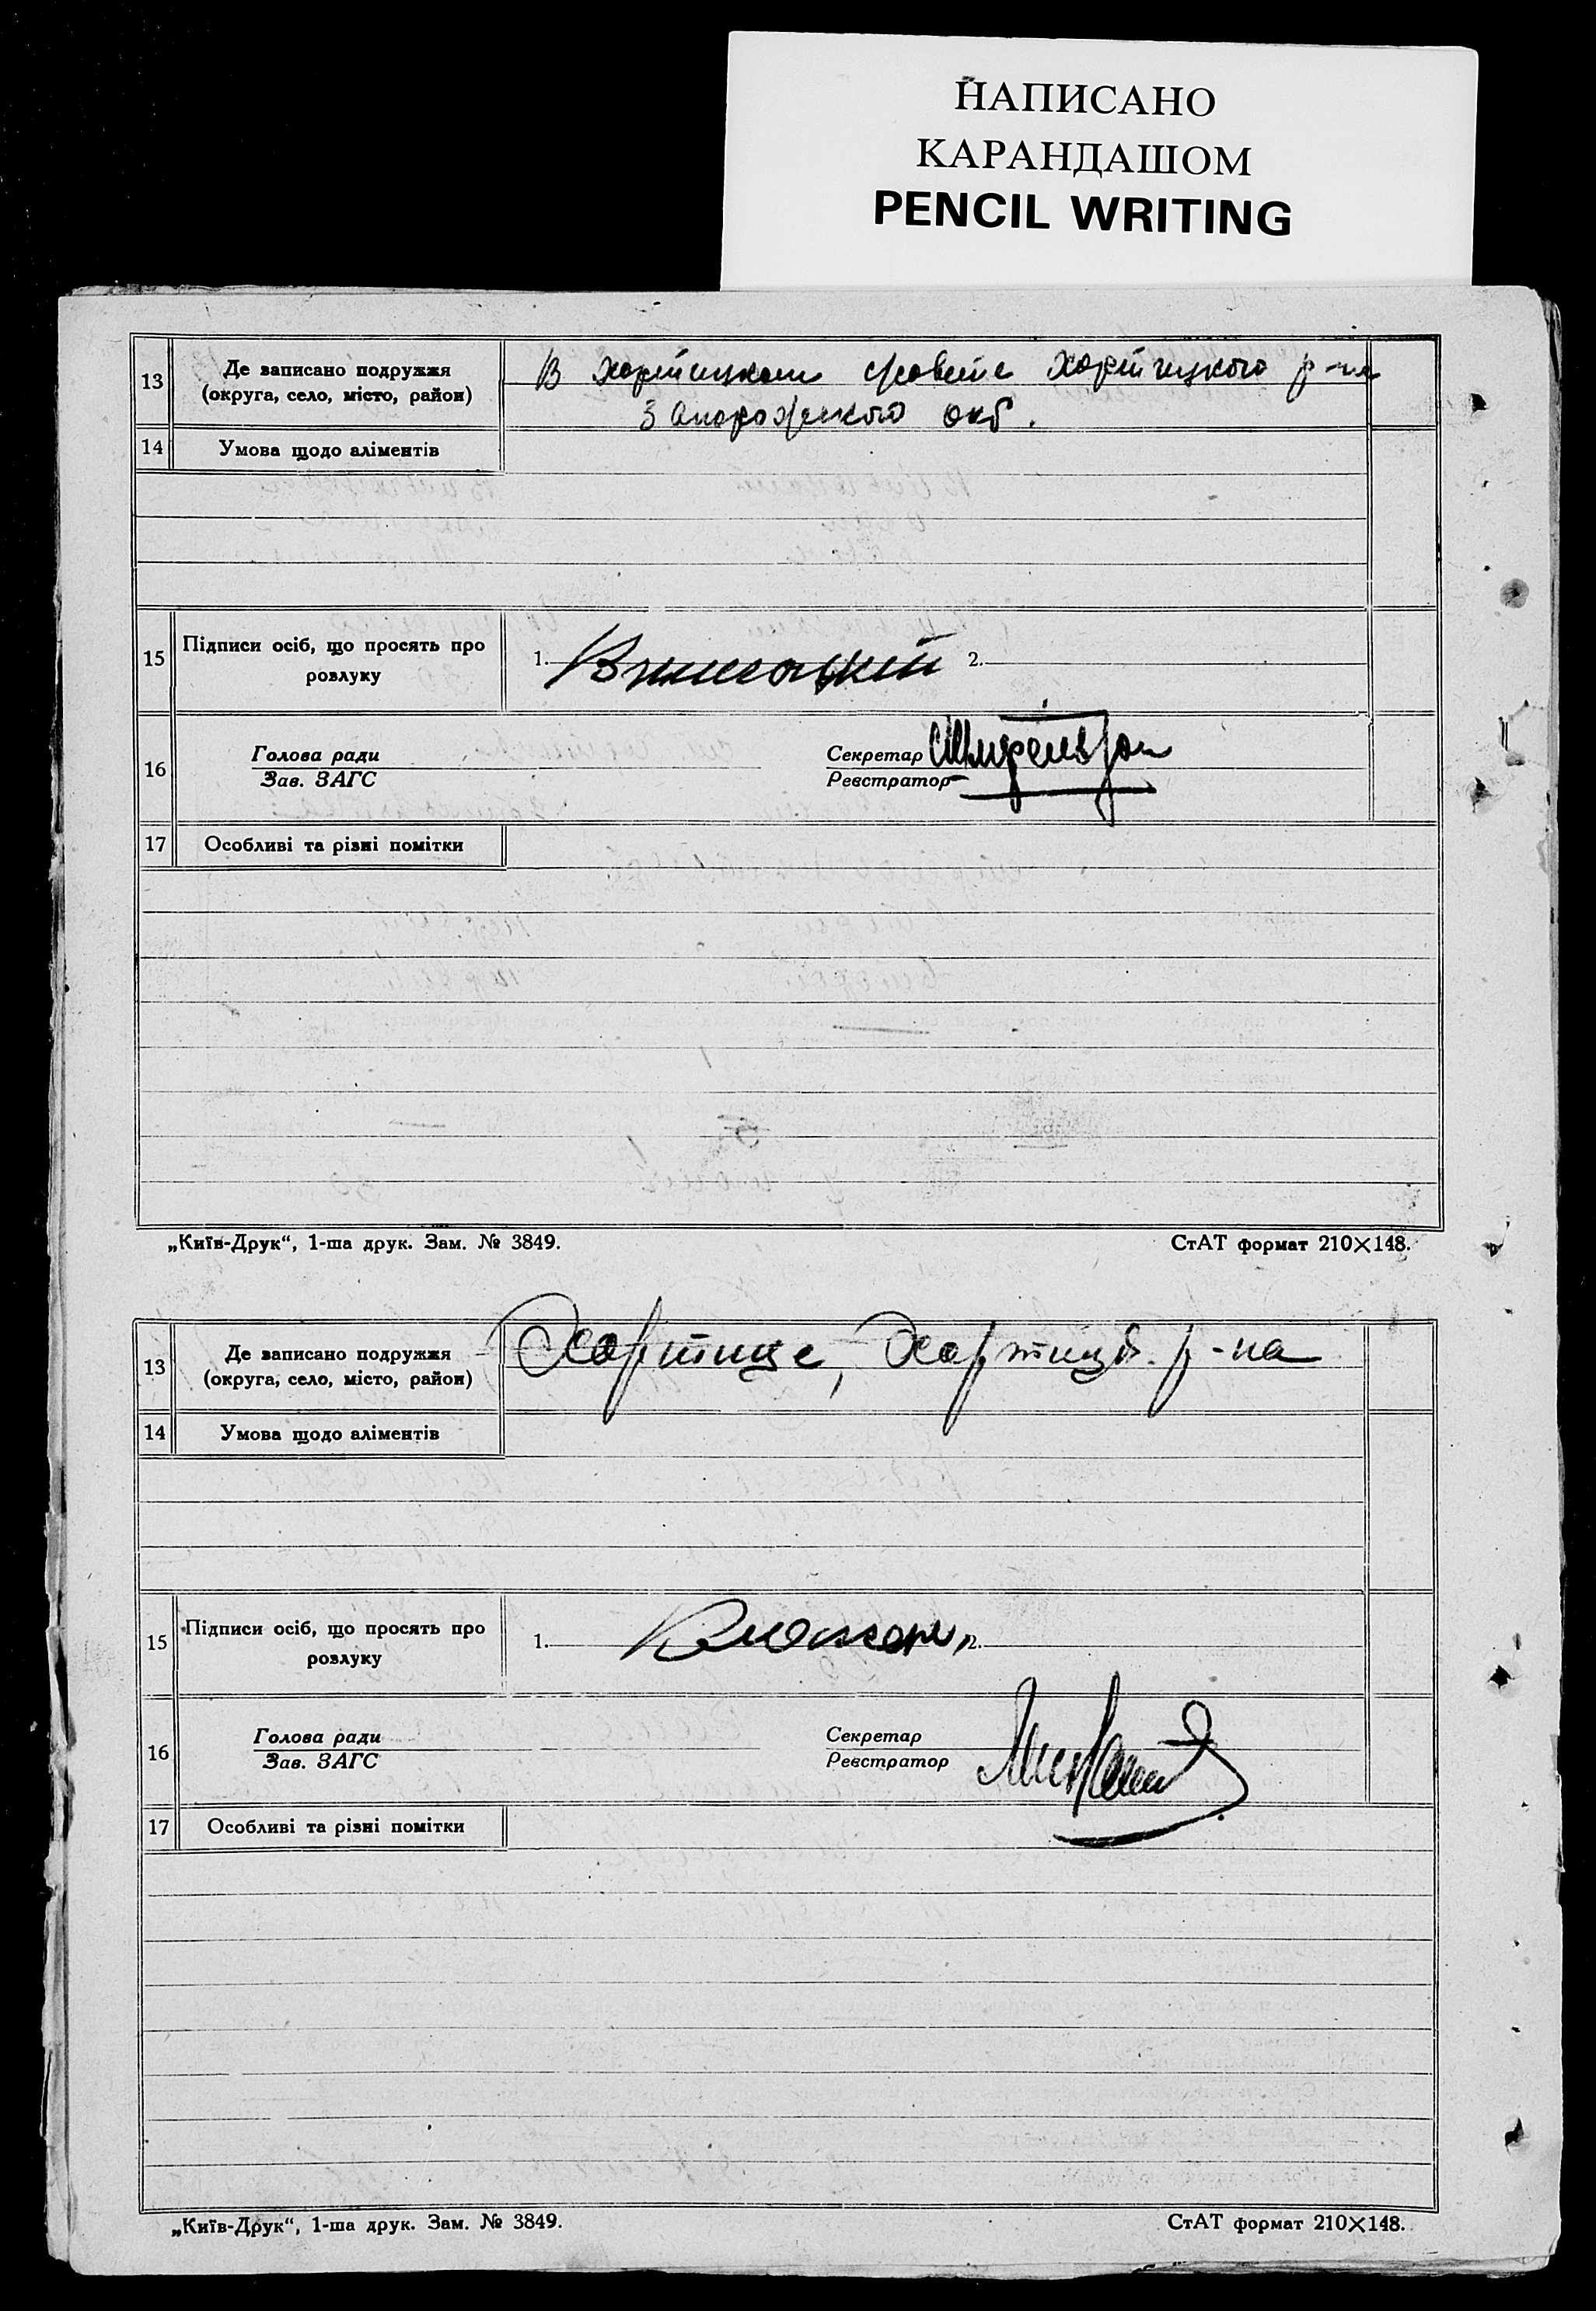 НАПИСАНО
КАРАНДАШОМ
PENCIL WRITING
13 Де записано подружжя В Хортицком Хортицкого р-на
(округа, село, місто, район) Запорожского окр.
14 Умова щодо аліментів
15 Підписи осіб, що просять про 1. 2.
розлуку
16 Голова ради Секретар
Зав. ЗАГС Реєстратор
17 Особливі та різні помітки
„Київ-Друк“, 1-ша друк. Зам. № 3849. СтАТ формат 210×148.
13 Де записано подружжя Хортице, р-на
(округа, село, місто, район)
14 Умова щодо аліментів
15 Підписи осіб, що просять про 1. 2.
розлуку
16 Голова ради Секретар
Зав. ЗАГС Реєстратор
17 Особливі та різні помітки
„Київ-Друк“, 1-ша друк. Зам. № 3849. СтАТ формат 210×148.